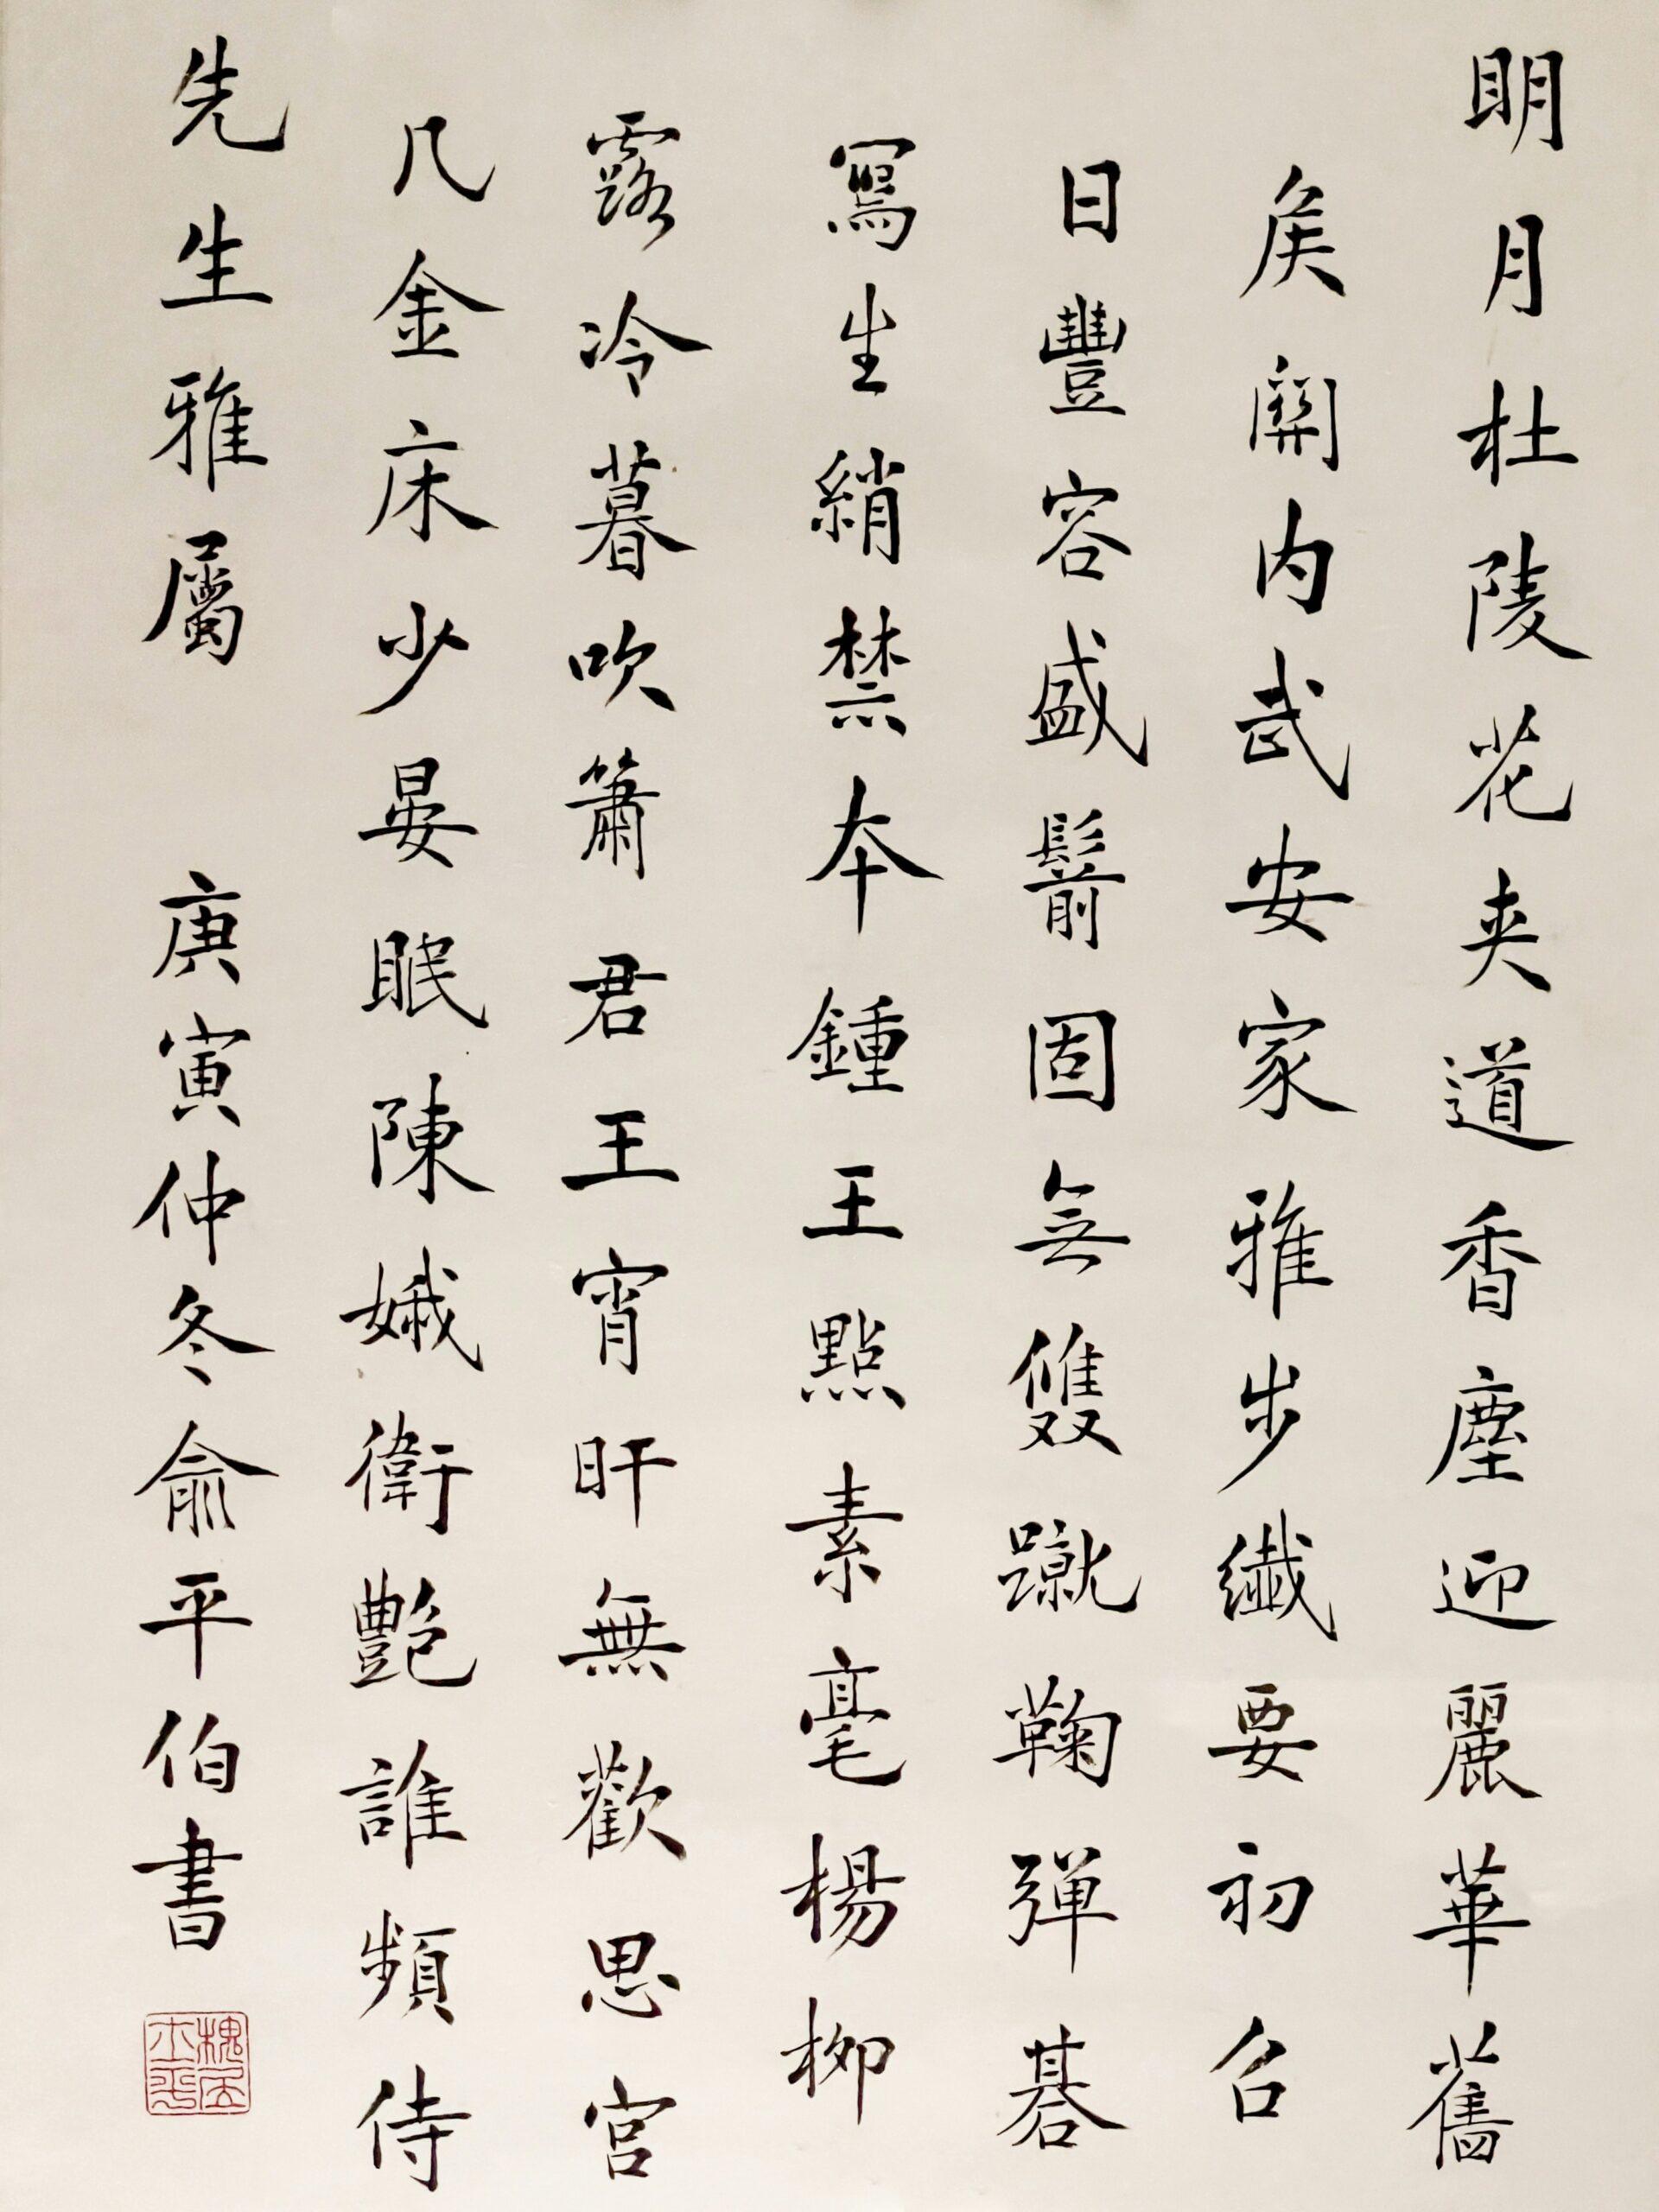 明月杜陵花夾道香塵迎麗華舊
矦關内武安家雅步纖要初召
日豐容盛鬋固無雙蹴鞠彈碁
寫生綃禁本鍾王點素毫楊柳
露冷暮吹簫君王宵旰無歡思宮
几金床少晏眠陳娥衛艷誰頻侍
先生雅屬 庚寅仲冬俞平伯書